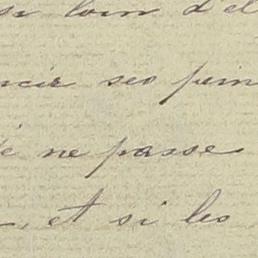 si loin d'el
ses pein
ne passe
, et si les